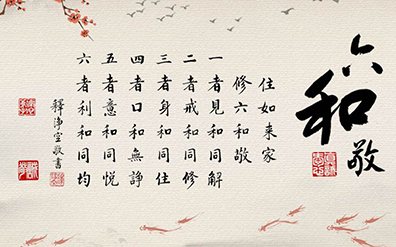 六和敬
住如来家
修六和敬
一者見和同解
二者戒和同修
三者身和同住
四者口和無諍
五者意和同悅
六者利和同均
釋淨空敬書